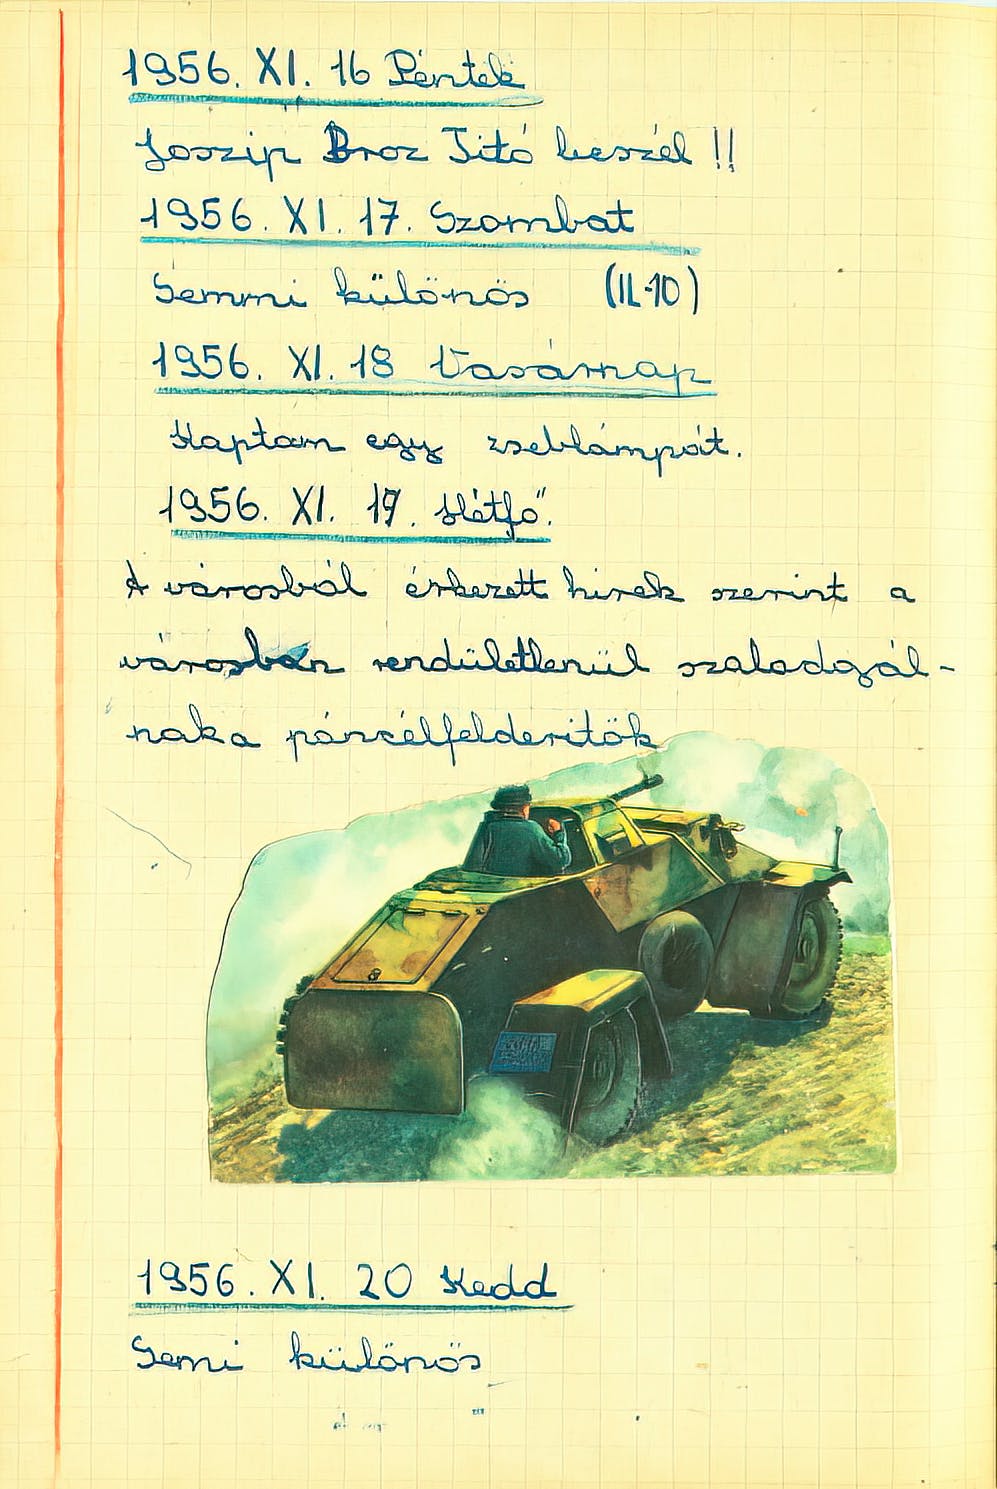 1956. XI. 16 Péntek
Joszip Broz Titó beszél !!
1956. XI. 17. Szombat
Semmi különös (IL-10)
1956. XI. 18 Vasárnap
Kaptam egy zseblámpát.
1956. XI. 19. Hétfő.
A városból érkezett hirek szerint a
városban rendületlenül szaladgál-
nak a páncélfelderitők
1956. XI. 20 Kedd
Semi különös